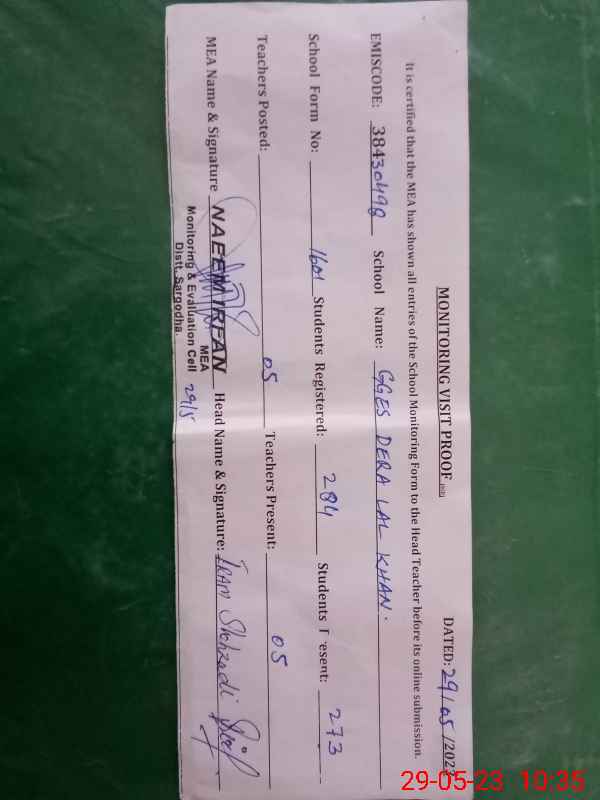 MONITORING VISIT PROOF
DATED: 29/05/202
It is certified that the MEA has shown all entries of the School Monitoring Form to the Head Teacher before its online submission.
EMISCODE: 38430498 School Name: GGES DERA LAL KHAN.
School Form No: 1601 Students Registered: 284 Students Present: 273
Teachers Posted: 05 Teachers Present: 05
MEA Name & Signature NAEEM IRFAN Head Name & Signature: IRAM Shehzadi
MEA
Monitoring & Evaluation Cell
Distt. Sargodha.
29/5
29-05-23 10:35